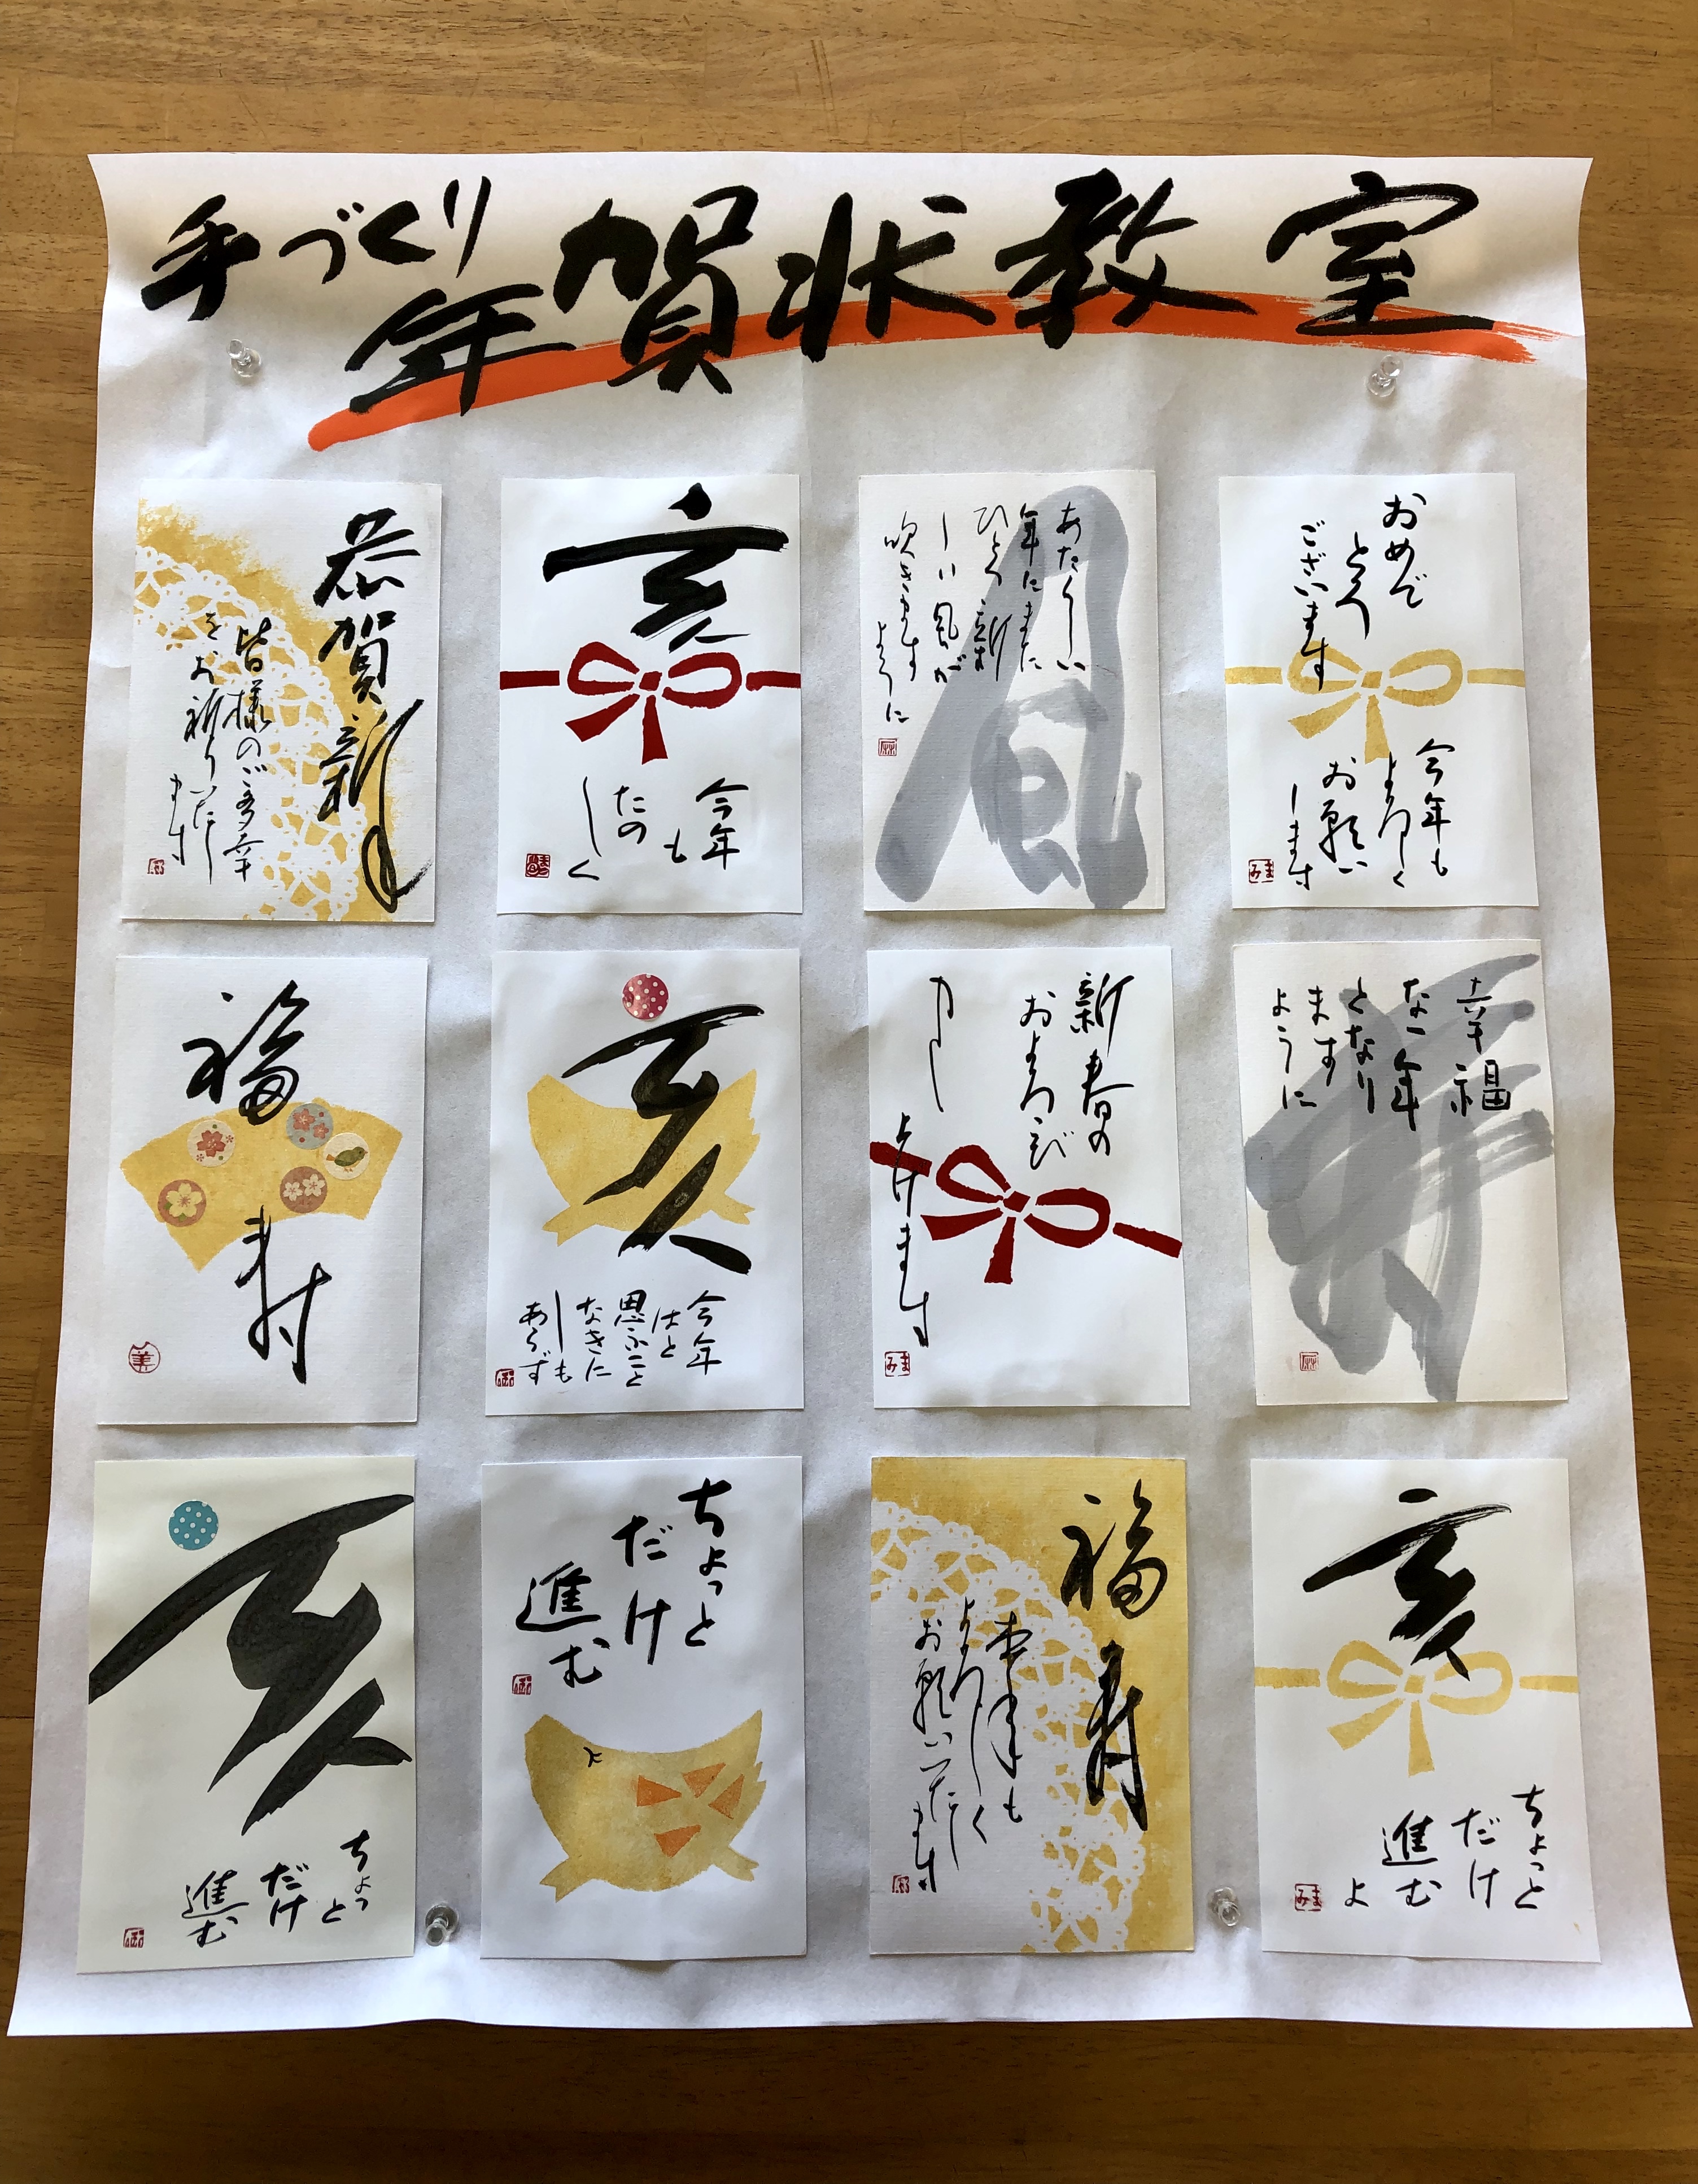 手づくり
年賀状教室
恭賀新年
皆様のご多幸
をお祈りいたし
ます
亥
今年
も
たの
し
く
風
あたらしい
年にまた
ひとつ新
しい風が
吹きます
ように
おめで
とう
ございます
今年も
よろしく
お願い
します
まみ
福
寿
美
亥
今年
はと
思ふこと
なきに
しも
あらず
新春の
およろこび
申し
上げます
まみ
幸福
な一年
となり
ます
ように
亥
ちょっと
だけ
進む
ちょっと
だけ
進む
福寿
本年も
よろしく
お願いいたし
ます
亥
ちょっと
だけ
進む
よ
まみ